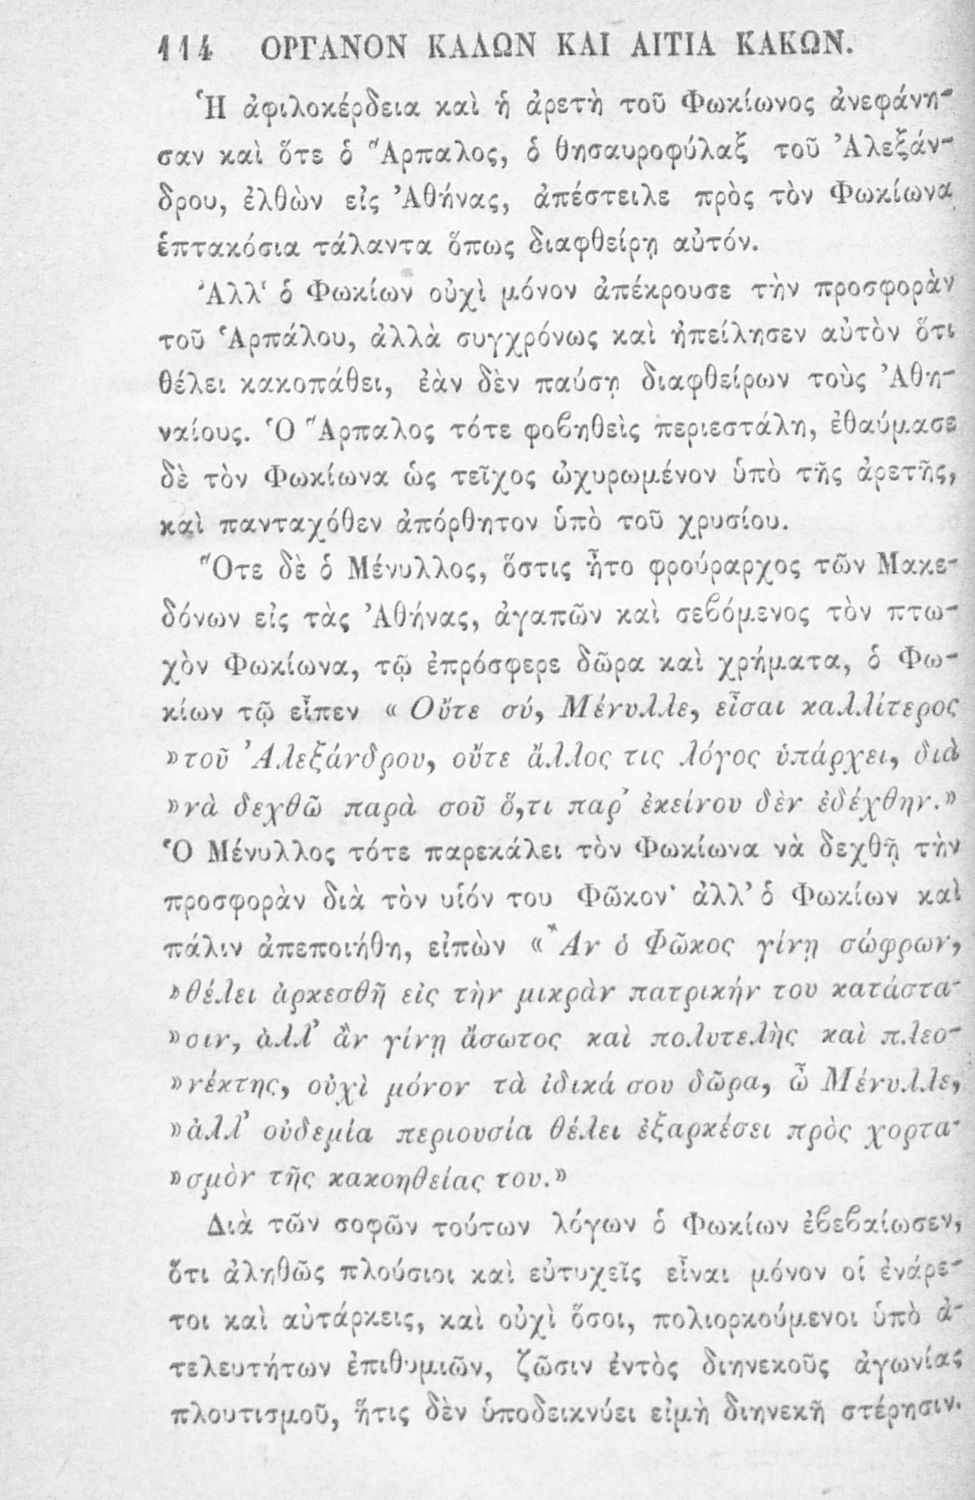 114 ΟΡΓΑΝΟΝ ΚΑΛΩΝ ΚΑΙ ΑΙΤΙΑ ΚΑΚΩΝ.
Ἡ ἀφιλοκέρδεια καὶ ἡ ἀρετὴ τοῦ Φωκίωνος ἀνεφάνη-
σαν καὶ ὅτε ὁ Ἅρπαλος, ὁ θησαυροφύλαξ τοῦ Ἀλεξάν-
δρου, ἐλθὼν εἰς Ἀθήνας, ἀπέστειλε πρὸς τὸν Φωκίωνα
ἑπτακόσια τάλαντα ὅπως διαφθείρῃ αὐτόν.
Ἀλλ' ὁ Φωκίων οὐχὶ μόνον ἀπέκρουσε τὴν προσφορὰν
τοῦ Ἁρπάλου, ἀλλὰ συγχρόνως καὶ ἠπείλησεν αὐτὸν ὅτι
θέλει κακοπάθει, ἐὰν δὲν παύσῃ διαφθείρων τοὺς Ἀθη-
ναίους. Ὁ Ἅρπαλος τότε φοβηθεὶς περιεστάλη, ἐθαύμασε
δὲ τὸν Φωκίωνα ὡς τεῖχος ὠχυρωμένον ὑπὸ τῆς ἀρετῆς,
καὶ πανταχόθεν ἀπόρθητον ὑπὸ τοῦ χρυσίου.
Ὅτε δὲ ὁ Μένυλλος, ὅστις ἦτο φρούραρχος τῶν Μακε-
δόνων εἰς τὰς Ἀθήνας, ἀγαπῶν καὶ σεβόμενος τὸν πτω-
χὸν Φωκίωνα, τῷ ἐπρόσφερε δῶρα καὶ χρήματα, ὁ Φω-
κίων τῷ εἶπεν « Οὔτε σύ, Μένυλλε, εἶσαι καλλίτερος
»τοῦ Ἀλεξάνδρου, οὔτε ἄλλος τις λόγος ὑπάρχει, διὰ
»νὰ δεχθῶ παρὰ σοῦ ὅ,τι παρ' ἐκείνου δὲν ἐδέχθην.»
Ὁ Μένυλλος τότε παρεκάλει τὸν Φωκίωνα νὰ δεχθῇ τὴν
προσφορὰν διὰ τὸν υἱόν του Φῶκον· ἀλλ' ὁ Φωκίων καὶ
πάλιν ἀπεποιήθη, εἰπὼν « Ἂν ὁ Φῶκος γίνῃ σώφρων,
»θέλει ἀρκεσθῆ εἰς τὴν μικρὰν πατρικήν του κατάστα-
»σιν, ἀλλ' ἂν γίνῃ ἄσωτος καὶ πολυτελὴς καὶ πλεο-
»νέκτης, οὐχὶ μόνον τὰ ἰδικά σου δῶρα, ὦ Μένυλλε,
»ἀλλ' οὐδεμία περιουσία θέλει ἐξαρκέσει πρὸς χορτα-
»σμὸν τῆς κακοηθείας του.»
Διὰ τῶν σοφῶν τούτων λόγων ὁ Φωκίων ἐβεβαίωσεν,
ὅτι ἀληθῶς πλούσιοι καὶ εὐτυχεῖς εἶναι μόνον οἱ ἐνάρε-
τοι καὶ αὐτάρκεις, καὶ οὐχὶ ὅσοι, πολιορκούμενοι ὑπὸ ἀ-
τελευτήτων ἐπιθυμιῶν, ζῶσιν ἐντὸς διηνεκοῦς ἀγωνίας
πλουτισμοῦ, ἥτις δὲν ὑποδεικνύει εἰμὴ διηνεκῆ στέρησιν.